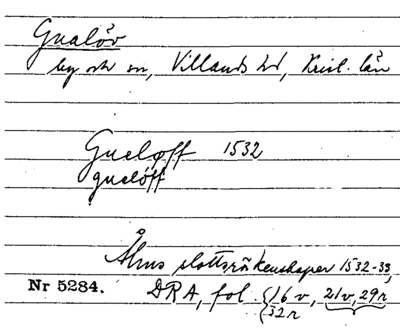 Gualöv
by och sn, Villands hd, Krist. län
Gueloff 1532
guelöff
Åhus slottsräkenskaper 1532-33,
Nr 5284. DRA, fol. (16 v, 21v, 29r
32r